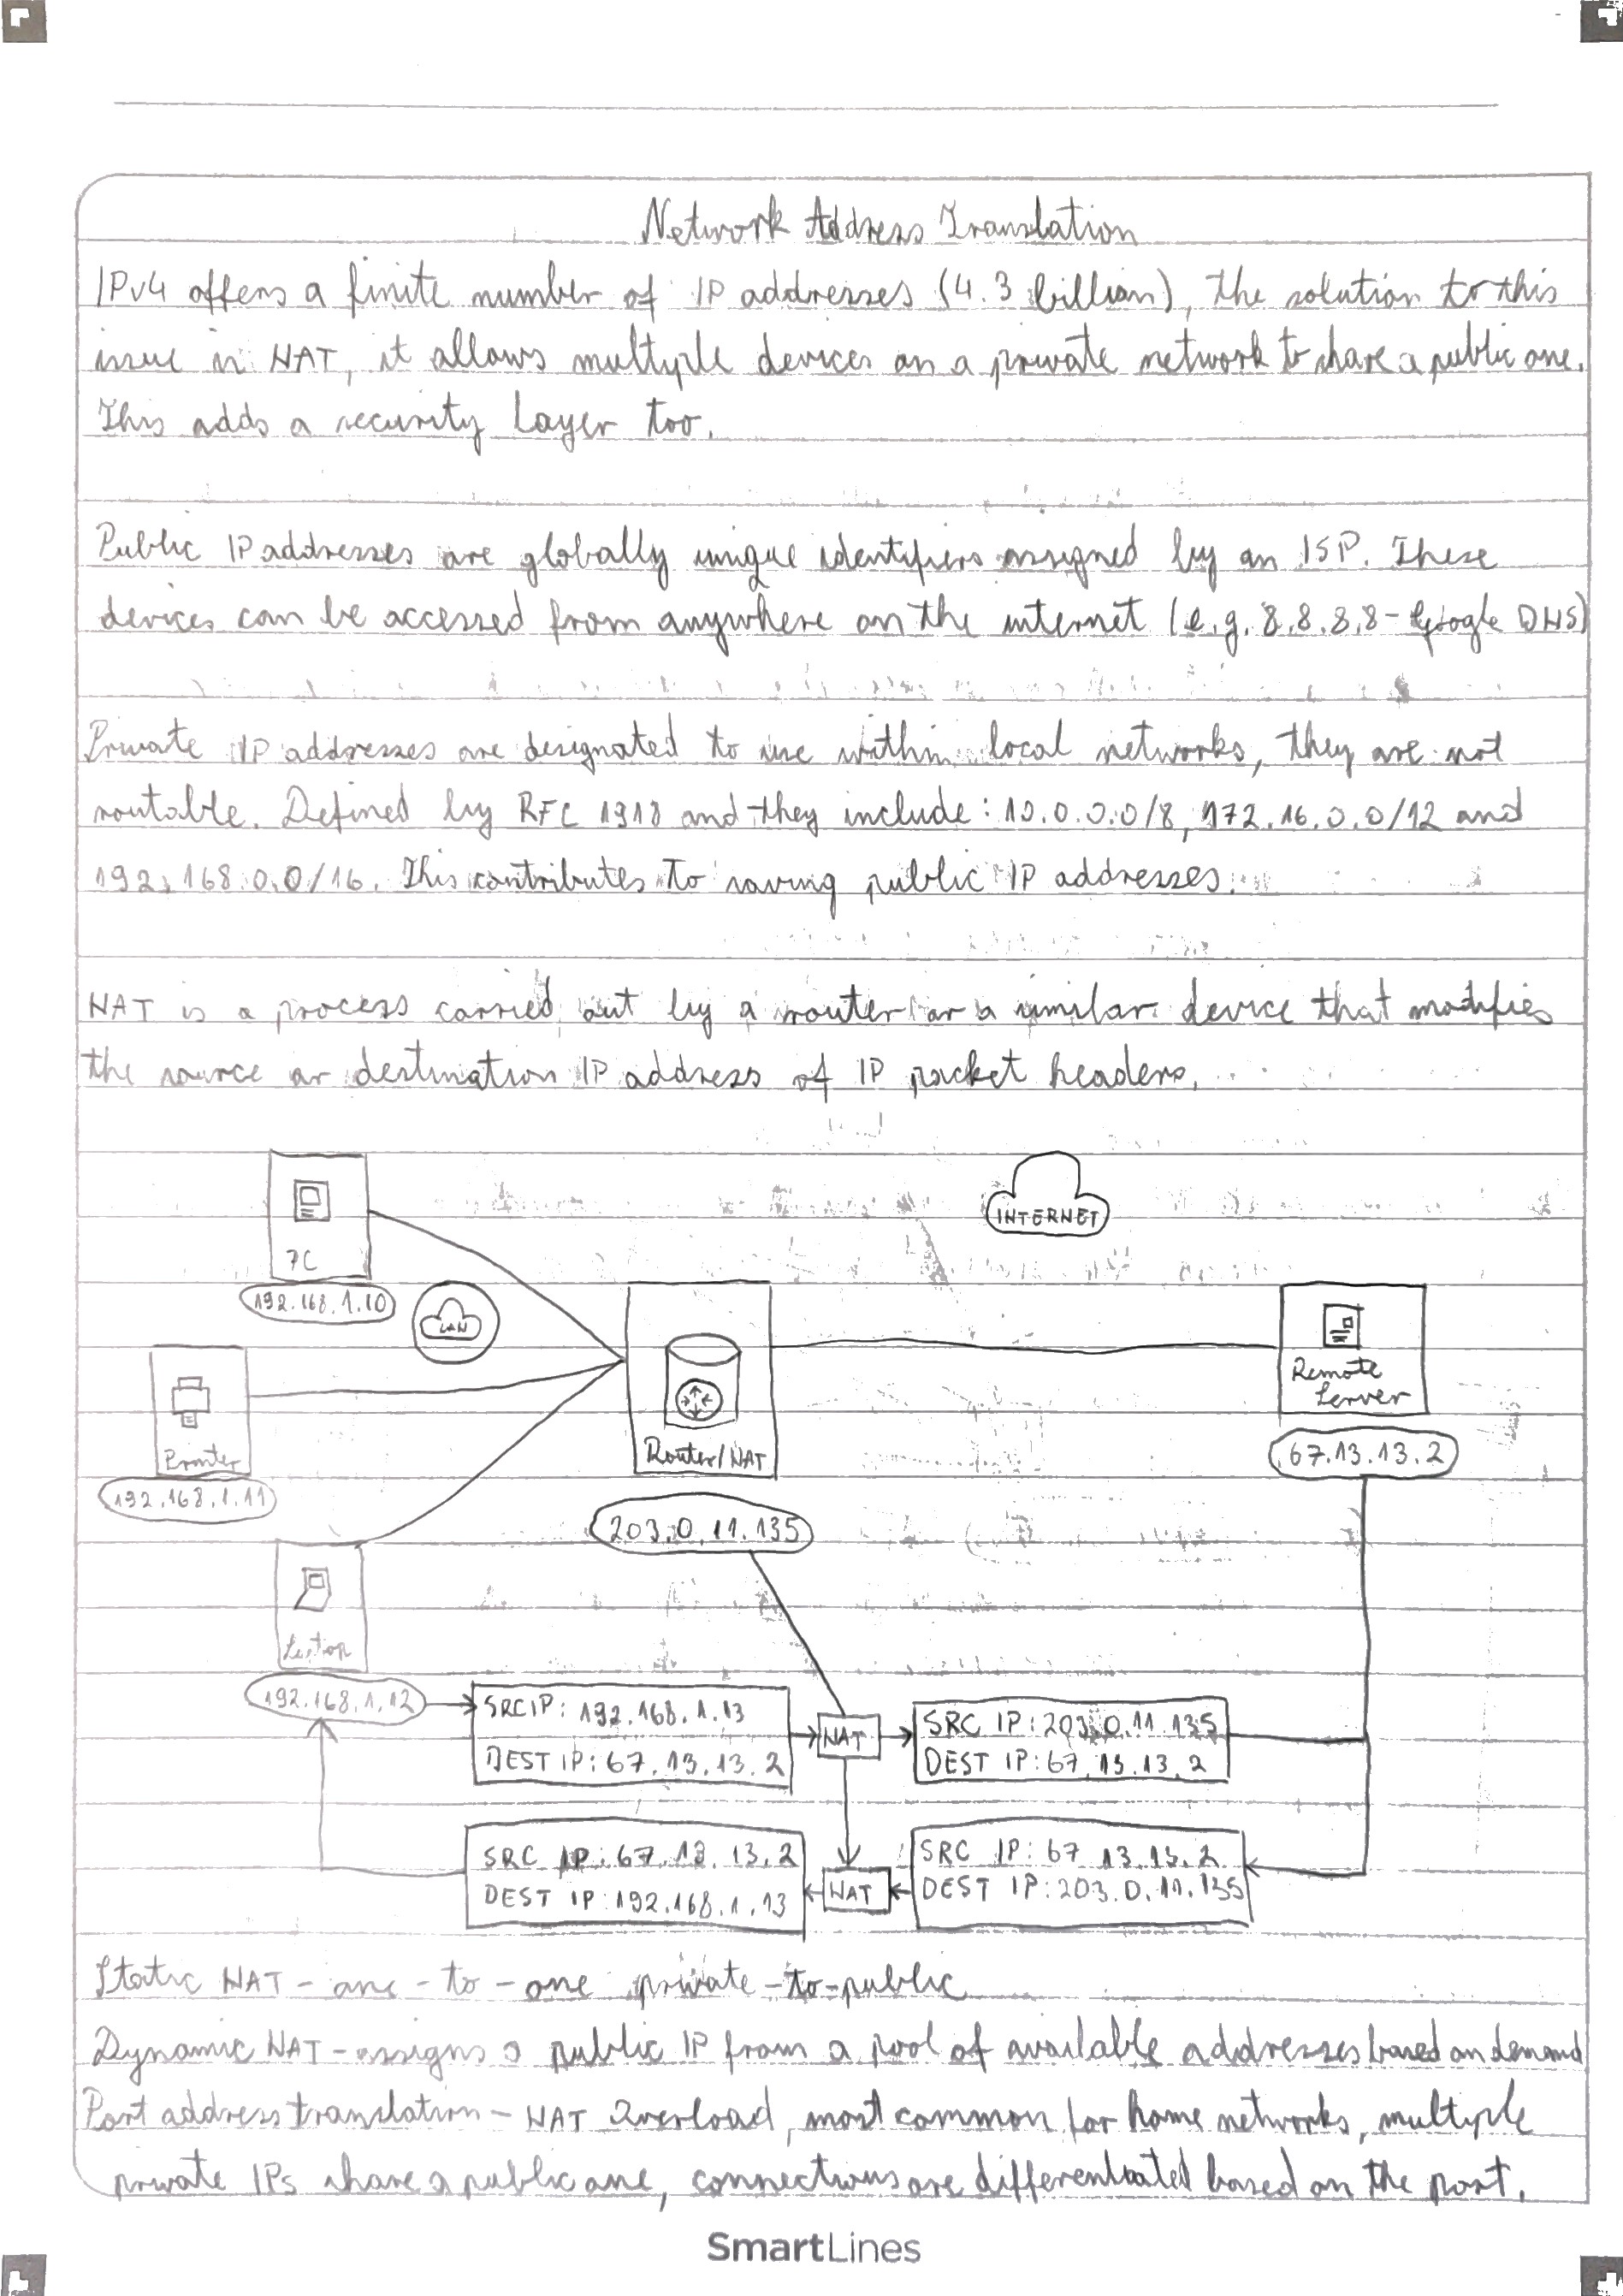 Network Address Translation
IPv4 offers a finite number of IP addresses (4.3 billion), the solution to this
issue is NAT, it allows multiple devices on a private network to share a public one.
This adds a security layer too.
Public IP addresses are globally unique identifiers assigned by an ISP. These
devices can be accessed from anywhere on the internet (e.g. 8.8.8.8 - Google DNS)
Private IP addresses are designated to use within local networks, they are not
routable. Defined by RFC 1918 and they include: 10.0.0.0/8, 172.16.0.0/12 and
192.168.0.0/16. This contributes to saving public IP addresses.
NAT is a process carried out by a router or a similar device that modifies
the source or destination IP address of IP packet headers.
INTERNET
PC
192.168.1.10
LAN
Remote
Server
Router/NAT
Printer
67.13.13.2
192.168.1.11
203.0.11.135
Laptop
192.168.1.12
SRC IP: 192.168.1.13
DEST IP: 67.13.13.2
NAT
SRC IP: 203.0.11.135
DEST IP: 67.13.13.2
SRC IP: 67.13.13.2
DEST IP: 192.168.1.13
NAT
SRC IP: 67 13.13.2
DEST IP: 203.0.11.135
Static NAT - one - to - one private - to - public
Dynamic NAT - assigns a public IP from a pool of available addresses based on demand
Port address translation - NAT Overload, most common for home networks, multiple
private IPs share a public one, connections are differentiated based on the port.
SmartLines